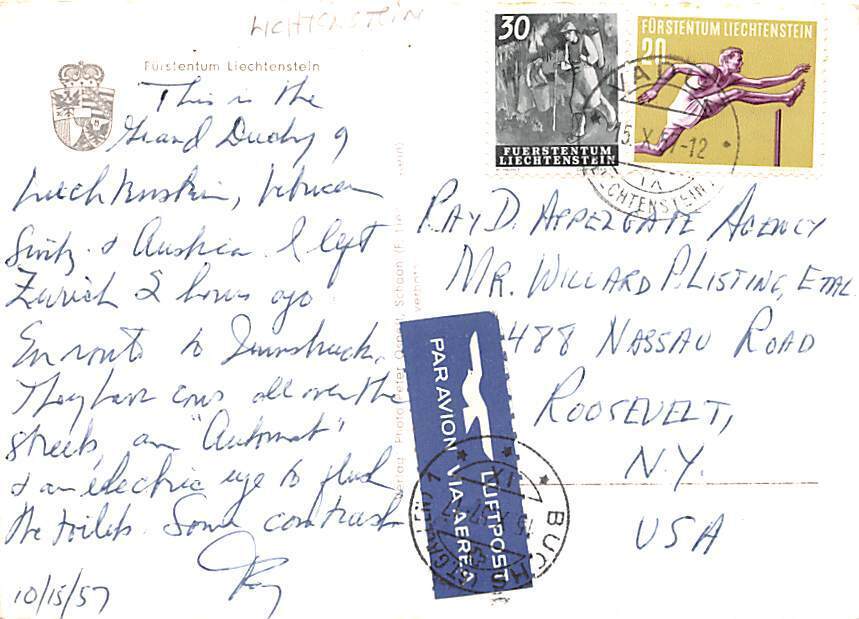 LICHTENSTEIN
Fürstentum Liechtenstein
This is the
Grand Duchy of
between
Switz. & Austria. I left
Zurich 2 hours ago
En route to Innsbruck.
They have cows all over the
streets, an "Automat"
& an electric eye to flush
the toilets. Some contrast
Ray
10/15/57
30
FUERSTENTUM
LIECHTENSTEIN
FÜRSTENTUM LIECHTENSTEIN
20
VADUZ
15. X. 57-12
LIECHTENSTEIN
RAY D. APPLEGATE AGENCY
MR. WILLARD P. LISTING, ETAL
488 NASSAU ROAD
ROOSEVELT,
N.Y.
USA
PAR AVION VIA AEREA
LUFTPOST
BUCHS
(ST. GALLEN) 2
Verlag Photo Peter Schaan